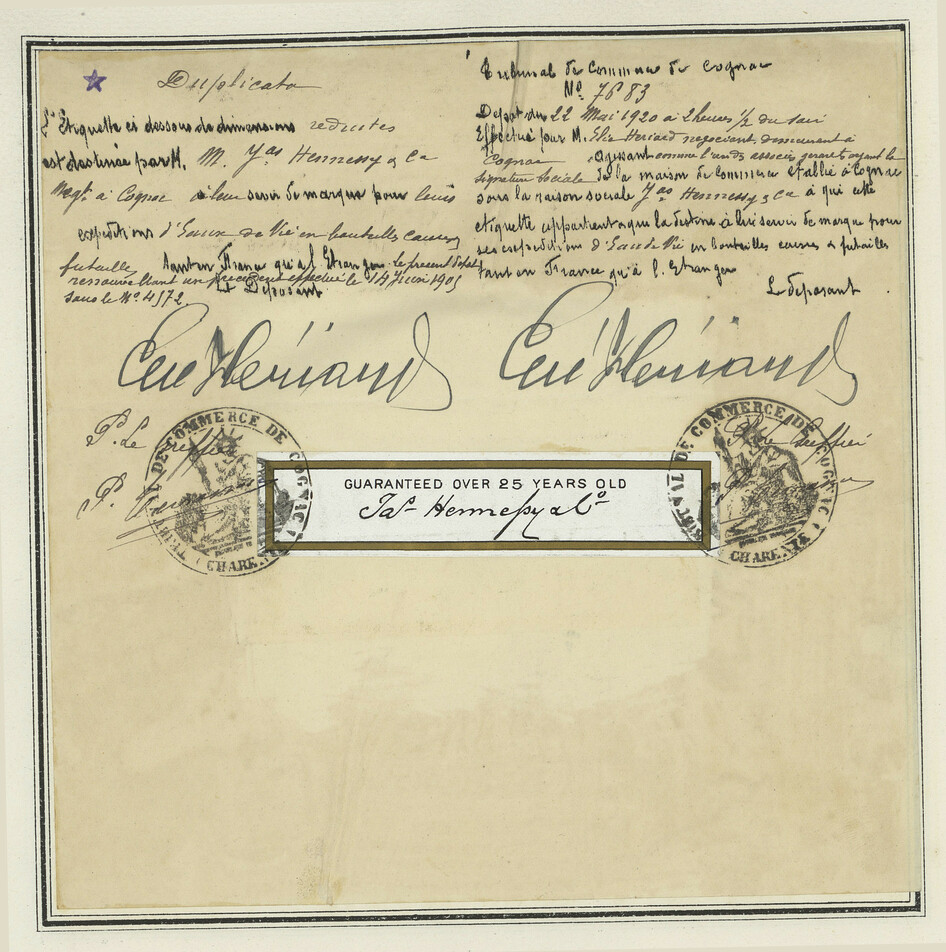 Duplicata
L'Etiquette ci dessous de dimensions reduites
est destinée par M. M. Jas Hennessy & Ca
Negts à Cognac à leur servir de marque pour leurs
expeditions d'Eaux de Vie en bouteilles caisses
futailles tant en France qu'a l'Etranger le present depot
renouvellant un precedent effectué le 14 Juin 1905
sous le No 4572
Le Deposant
Tribunal de Commerce de Cognac
No 7683
Depot du 22 Mai 1920 à 2 heures 1/2 du soir
Effectué par M. Elie Heriard negociant demeurant à
Cognac agissant comme l'un des associés gerants ayant la
signature sociale de la maison de commerce etablie à Cognac
sous la raison sociale Jas Hennessy & Ca à qui cette
etiquette appartient & qui la destine à lui servir de marque pour
ses expeditions d'Eau de Vie en bouteilles caisses & futailles
tant en France qu'à l'Etranger
Le deposant
P. Le Greffier
P. Le Greffier
TRIBUNAL DE COMMERCE DE COGNAC
CHARENTE
GUARANTEED OVER 25 YEARS OLD
Jas Hennessy & Co
TRIBUNAL DE COMMERCE DE COGNAC
CHARENTE